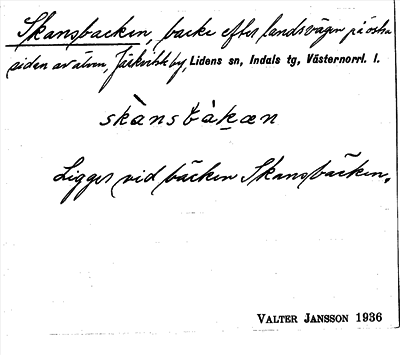 Skansbacken, backe efter landsvägen på östra
sidan av älven, Järkvitsle by, Lidens sn, Indals tg, Västernorrl. l.
skànsbàkæn
Ligger vid bäcken Skansbäcken.
VALTER JANSSON 1936